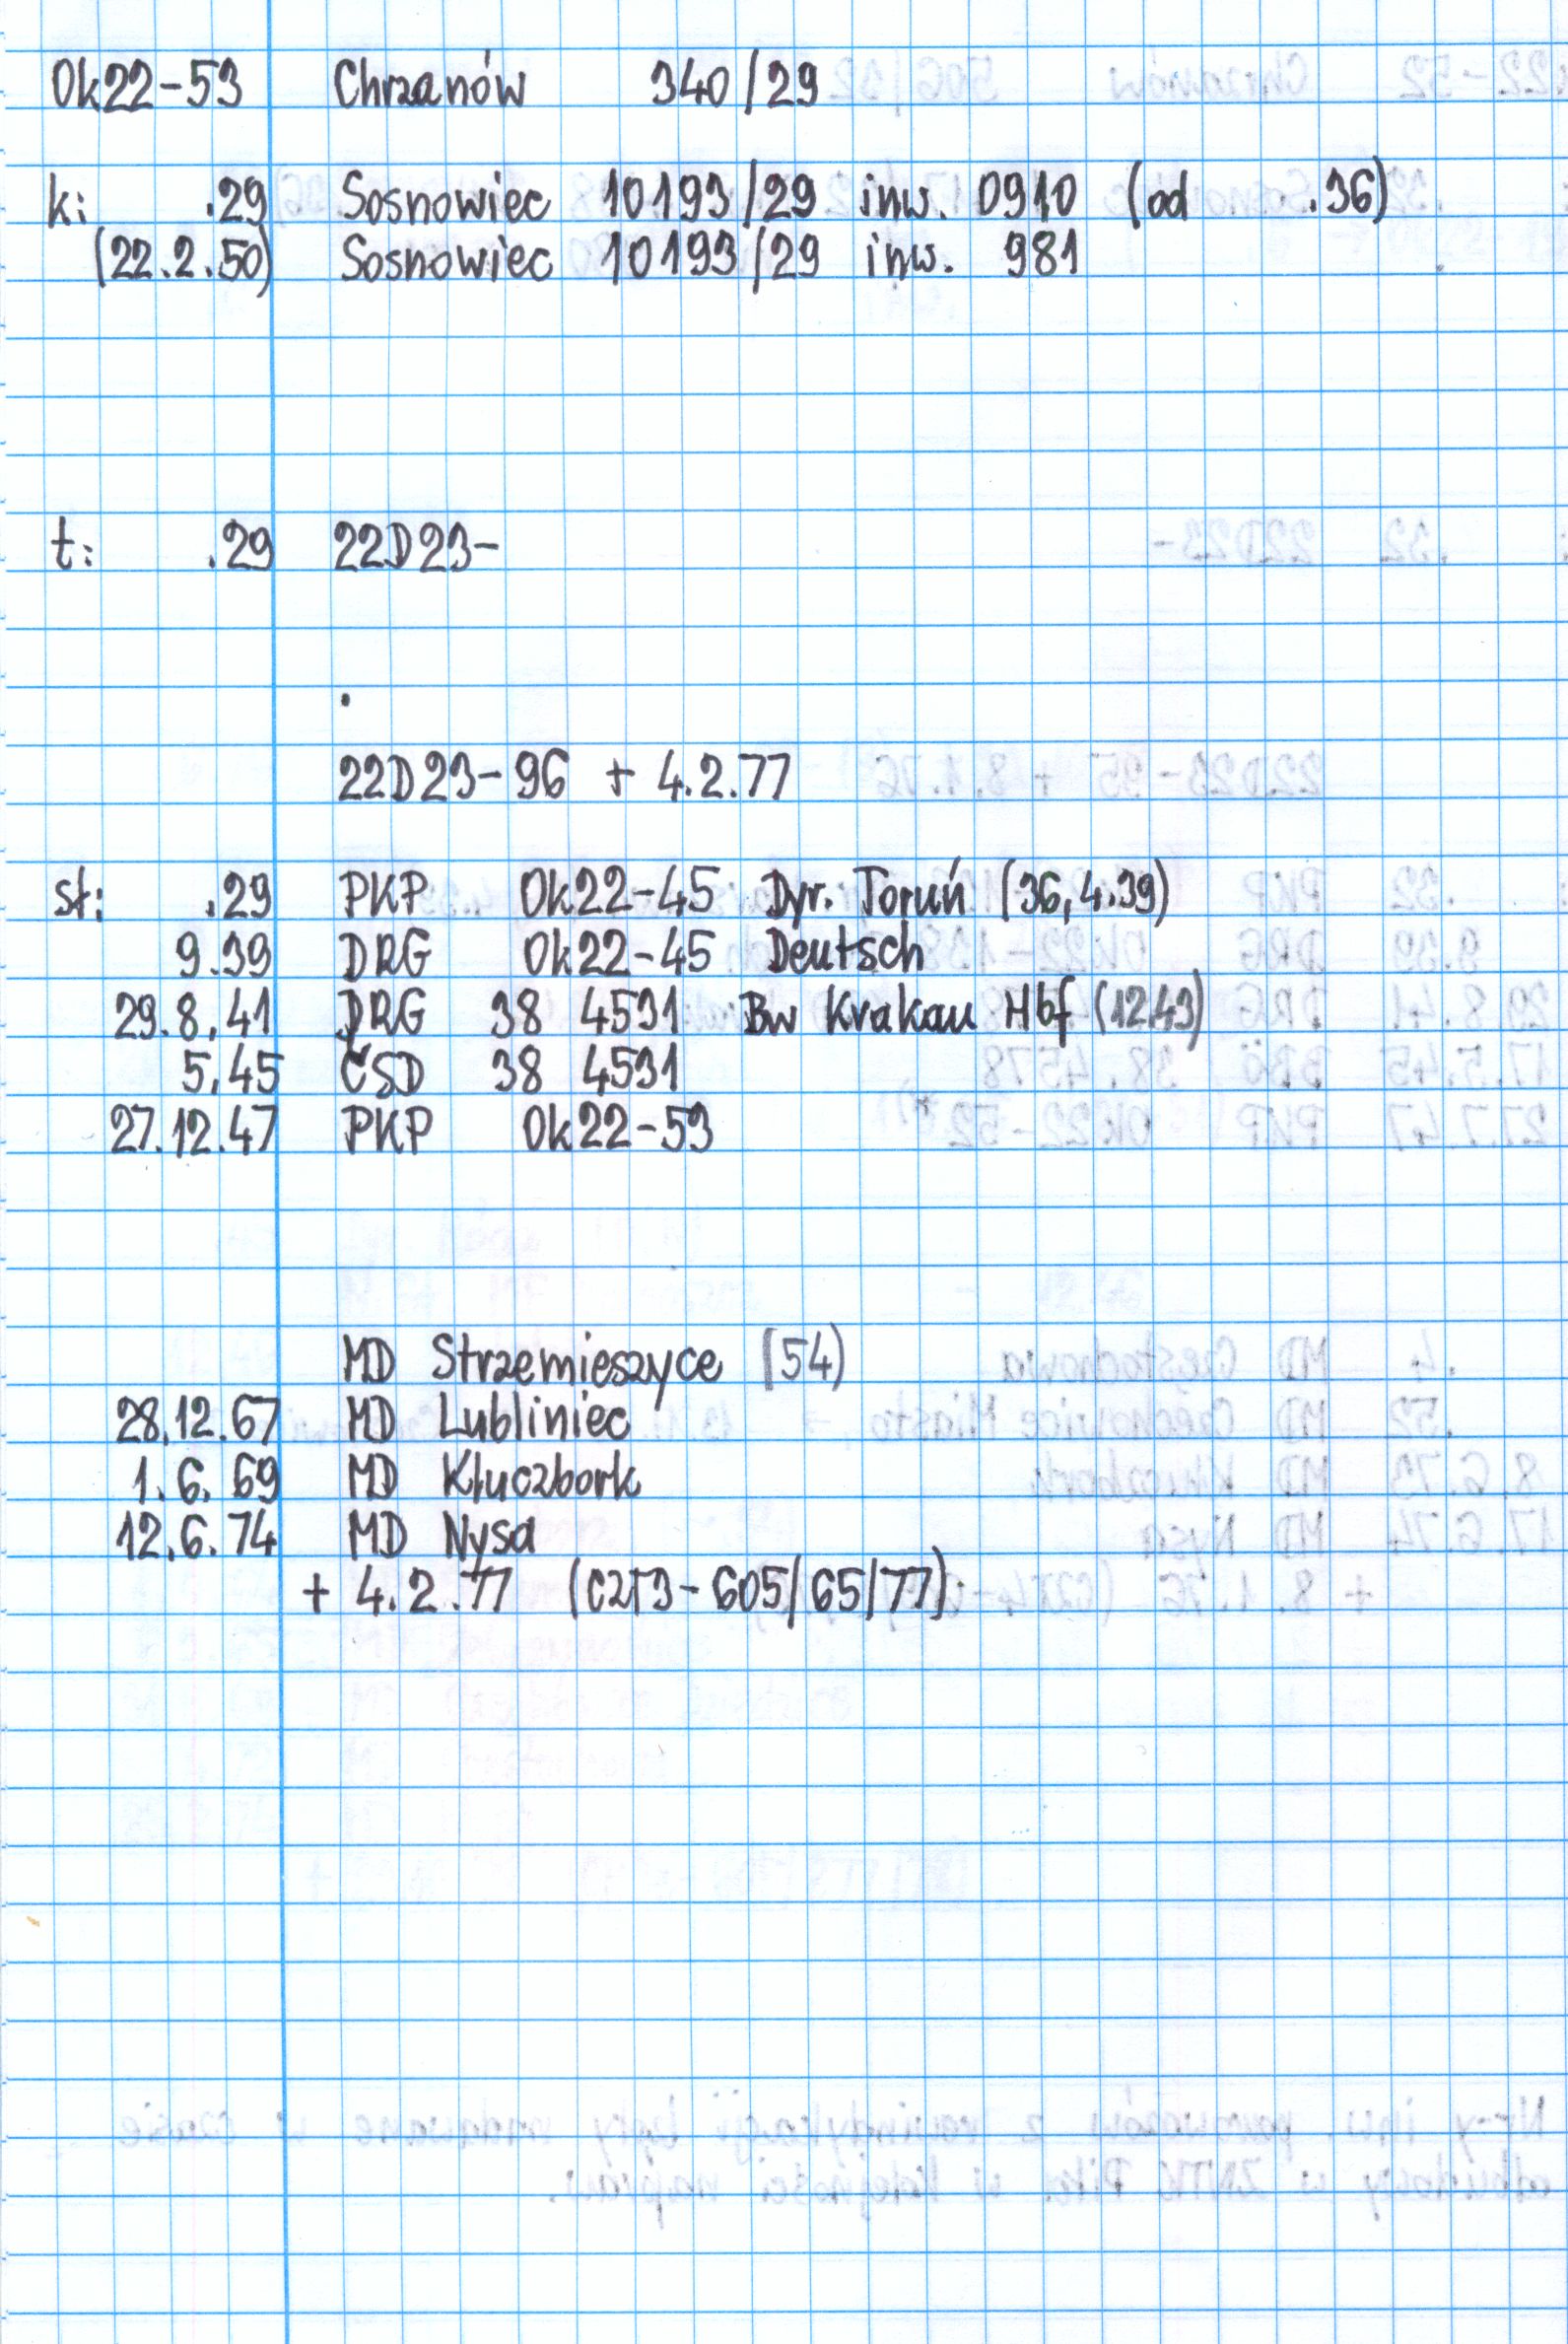 Ok22-53 Chrzanów 340/29
k: .29 Sosnowiec 10193/29 inw. 0910 (od .36)
(22.2.50) Sosnowiec 10193/29 inw. 981
t: .29 22D23-
22D23-96 + 4.2.77
st: .29 PKP Ok22-45 Dyr. Toruń (36,4.39)
9.39 DRG Ok22-45 Deutsch
29.8.41 DRG 38 4531 Bw Krakau Hbf (12.43)
5.45 ČSD 38 4531
27.12.47 PKP Ok22-53
MD Strzemieszyce (54)
28.12.67 MD Lubliniec
1.6.69 MD Kluczbork
12.6.74 MD Nysa
+ 4.2.77 (C2T3-605/65/77)